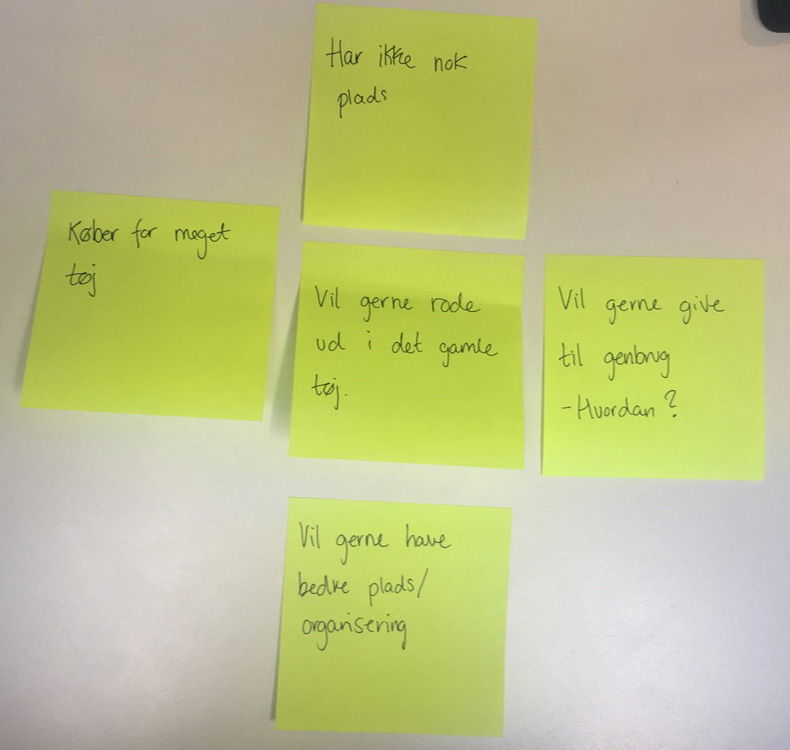 Har ikke nok
plads
Køber for meget
tøj
Vil gerne rode
ud i det gamle
tøj.
Vil gerne give
til genbrug
- Hvordan?
Vil gerne have
bedre plads/
organisering